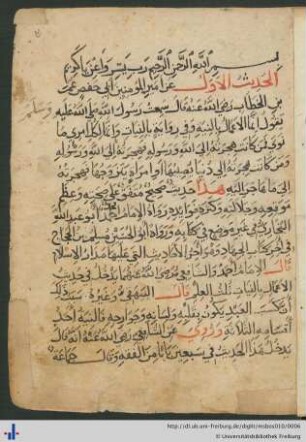 بسم الله الرحمن الرحيم رب يسر واعن يا كريم
الحديث الاول عن امير المومنين ابي حفص عمر
بن الخطاب رضي الله عنه قال سمعت رسول الله صلى الله عليه وسلم
يقول انما الاعمال بالنية وفي رواية بالنيات وانما لكل امرئ ما
نوى فمن كانت هجرته الى الله ورسوله فهجرته الى الله ورسوله
ومن كانت هجرته الى دنيا يصيبها او امراة يتزوجها فهجرته
الى ما هاجر اليه هذا حديث صحيح متفق على صحته وعظم
موقعه وجلالته وكثرة فوايده رواه الامام ابو عبد الله
البخاري في غير موضع من كتابه ورواه ابو الحسين مسلم بن الحجاج
في اخر كتاب الجهاد وهو احد الاحاديث التي عليها مدار الاسلام
قال الامام احمد والشافعي رضي الله عنهما يدخل في حديث
الاعمال بالنيات ثلث العلم قال البيهقي وغيره سبب ذلك
ان كسب العبد يكون بقلبه ولسانه وجوارحه فالنية احد
اقسامه الثلاثة وروي عن الشافعي رضي الله عنه انه قال
يدخل هذا الحديث في سبعين بابا من الفقه وقال جماعة
http://dl.ub.uni-freiburg.de/diglit/
© Universitätsbibliothek Freiburg